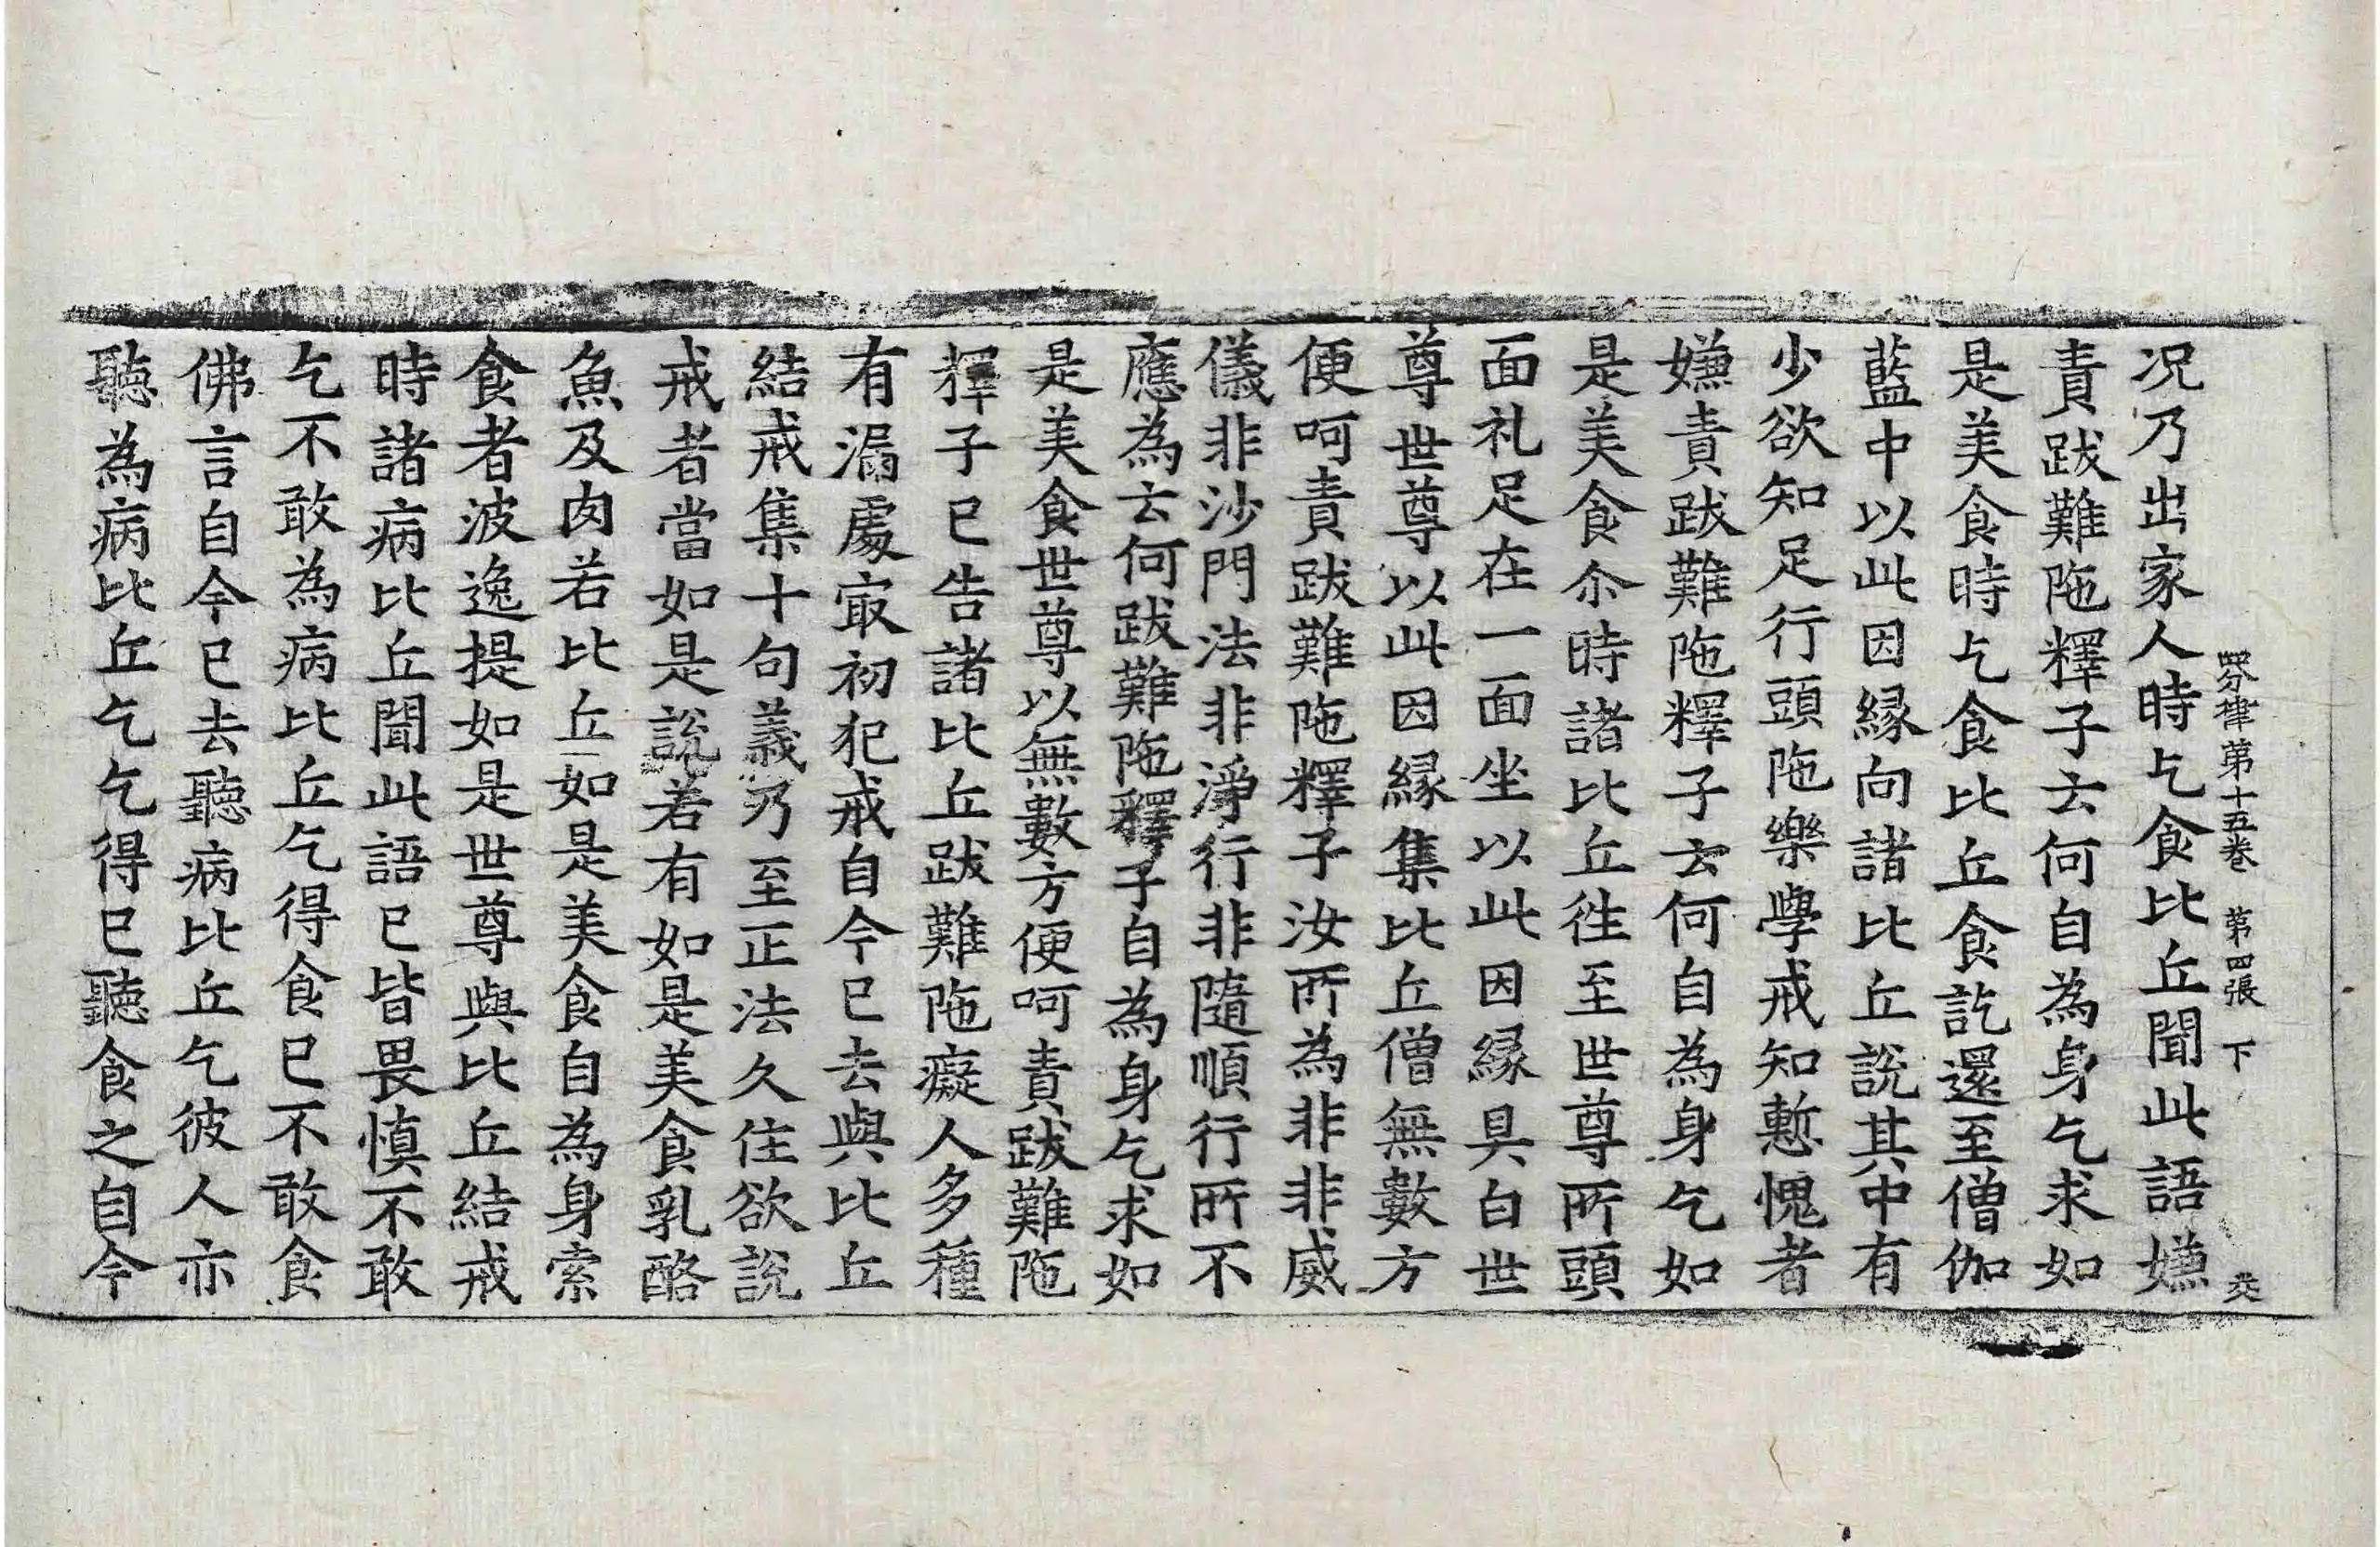 四分律第十五卷 第四張 下
况乃出家人時乞食比丘聞此語嫌
責跋難陁釋子去何自為身乞求如
是美食時乞食比丘食訖還至僧伽
藍中以此因縁向諸比丘說其中有
少欲知足行頭陁樂學戒知慙愧者
嫌責跋難陁釋子去何自為身乞如
是美食尒時諸比丘徃至世尊所頭
面礼足在一面坐以此因縁具白世
尊世尊以此因縁集比丘僧無數方
便呵責跋難陁釋子汝所為非非威
儀非沙門法非淨行非隨順行所不
應為去何跋難陁釋子自為身乞求如
是美食世尊以無數方便呵責跋難陁
釋子已告諸比丘跋難陁癡人多種
有漏處㝡初犯戒自今已去與比丘
結戒集十句義乃至正法久住欲說
戒者當如是說若有如是美食乳酪
魚及肉若比丘如是美食自為身索
食者波逸提如是世尊與比丘結戒
時諸病比丘聞此語已皆畏慎不敢
乞不敢為病比丘乞得食已不敢食
佛言自今已去聽病比丘乞彼人亦
聽為病比丘乞乞得已聽食之自今